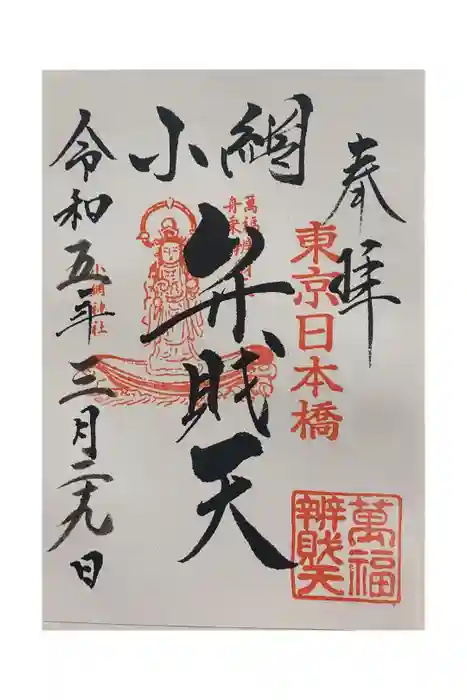 奉拝
東京日本橋
萬福
辨財天
小網
弁財天
小網神社
令和五年三月二十九日